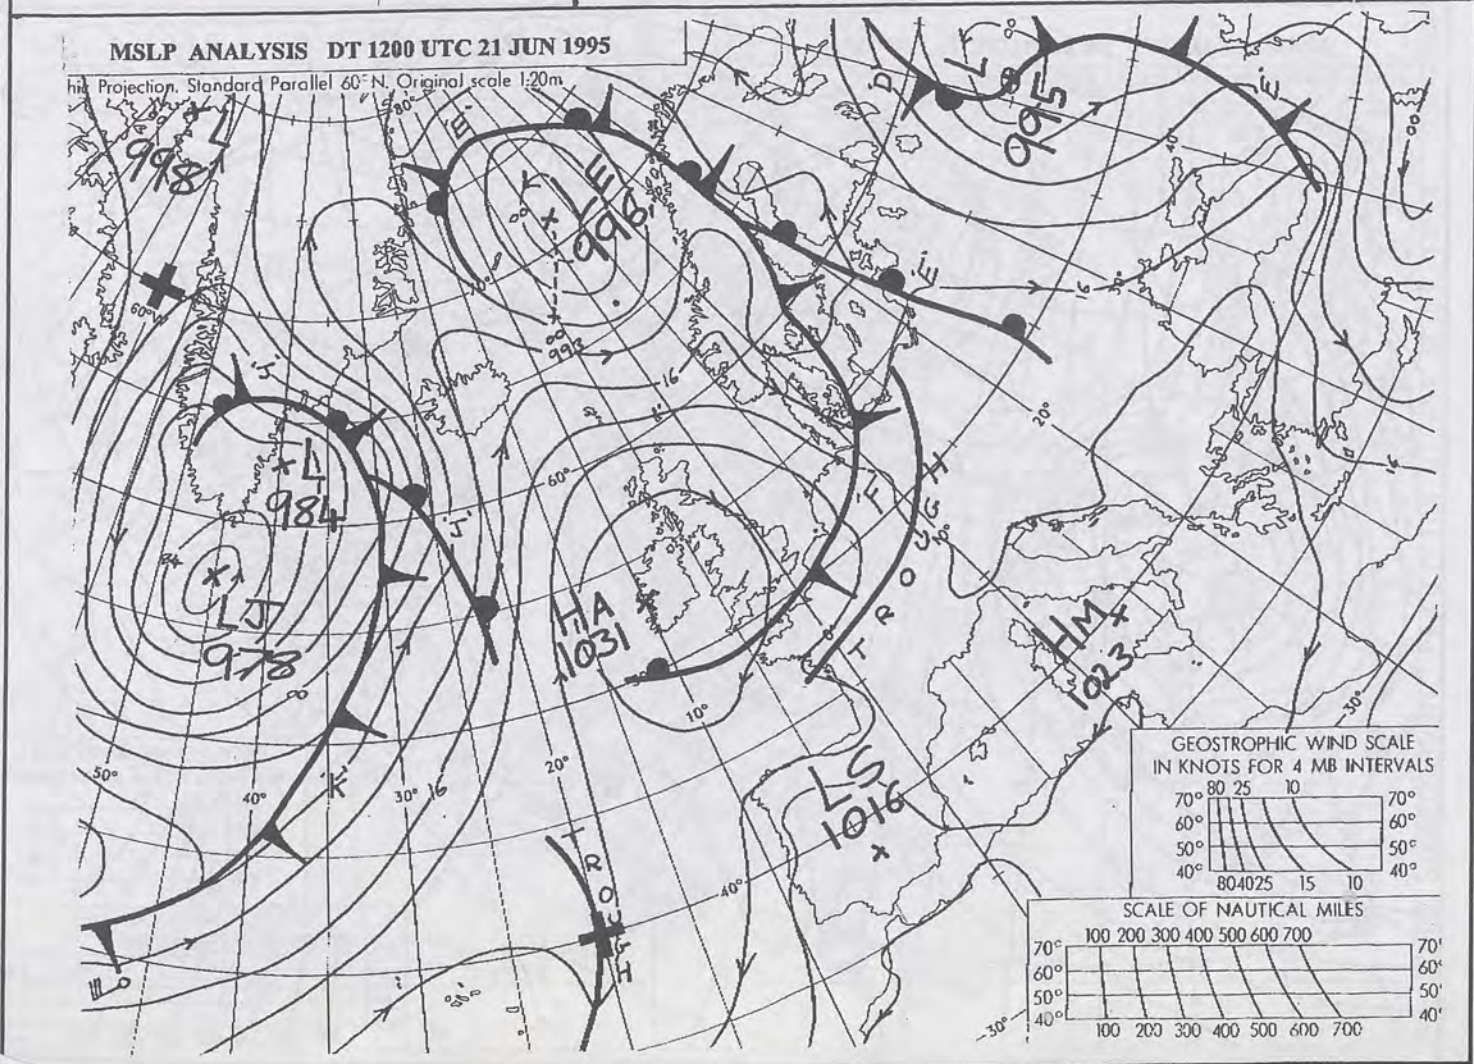 MSLP ANALYSIS DT 1200 UTC 21 JUN 1995
hic Projection. Standard Parallel 60° N. Original scale 1:20m
80°
L
998
'E'
L E
996
'D'
L
995
'E'
40°
60°W
70°
'E'
16
30°
00
993
16
20°
'J'
L
984
'J'
60°
'F'
TROUGH
10°
16
84
L J
978
HA
1031
0°
HM
1023
8
10°
30°
50°
40°
'K'
30°
16
20°
LS
1016
TROUGH
40°
30°
GEOSTROPHIC WIND SCALE
IN KNOTS FOR 4 MB INTERVALS
80 25 10
70° 70°
60° 60°
50° 50°
40° 40°
80 40 25 15 10
SCALE OF NAUTICAL MILES
100 200 300 400 500 600 700
70° 70°
60° 60°
50° 50°
40° 40°
100 200 300 400 500 600 700